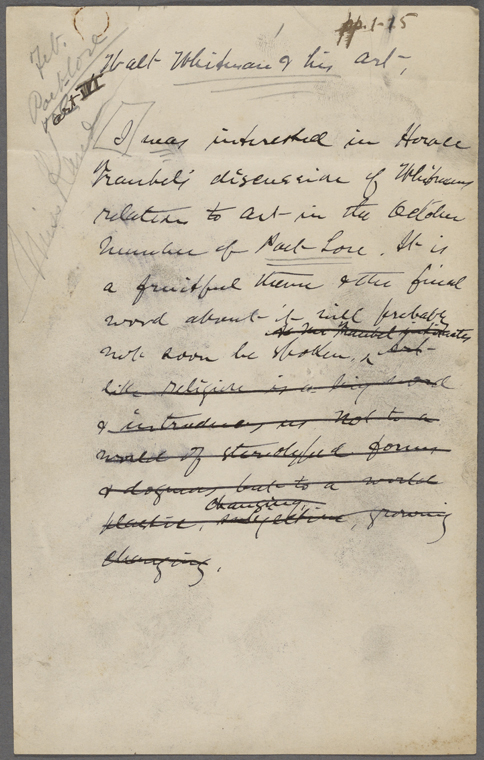 pp. 1-15
Feb.
Poet Lore
Walt Whitman & his Art.
I was interested in Horace
Traubel's discussion of Whitmans
relation to art in the October
number of Poet Lore. It is
a fruitful theme & the final
word about it will probably
not soon be spoken, as Mr Traubel intimates Art
like religion is a big word
& introduces us not to a
world of stereotyped forms
& dogmas but to a world
plastic, subjective, changing, growing
changing.